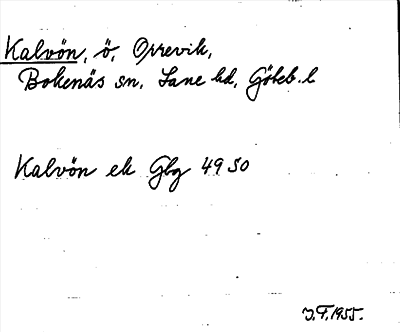 Kalvön, ö, Orrevik,
Bokenäs sn, Lane hd, Göteb. l
Kalvön ek Gbg 49 SO
J.F. 1955.